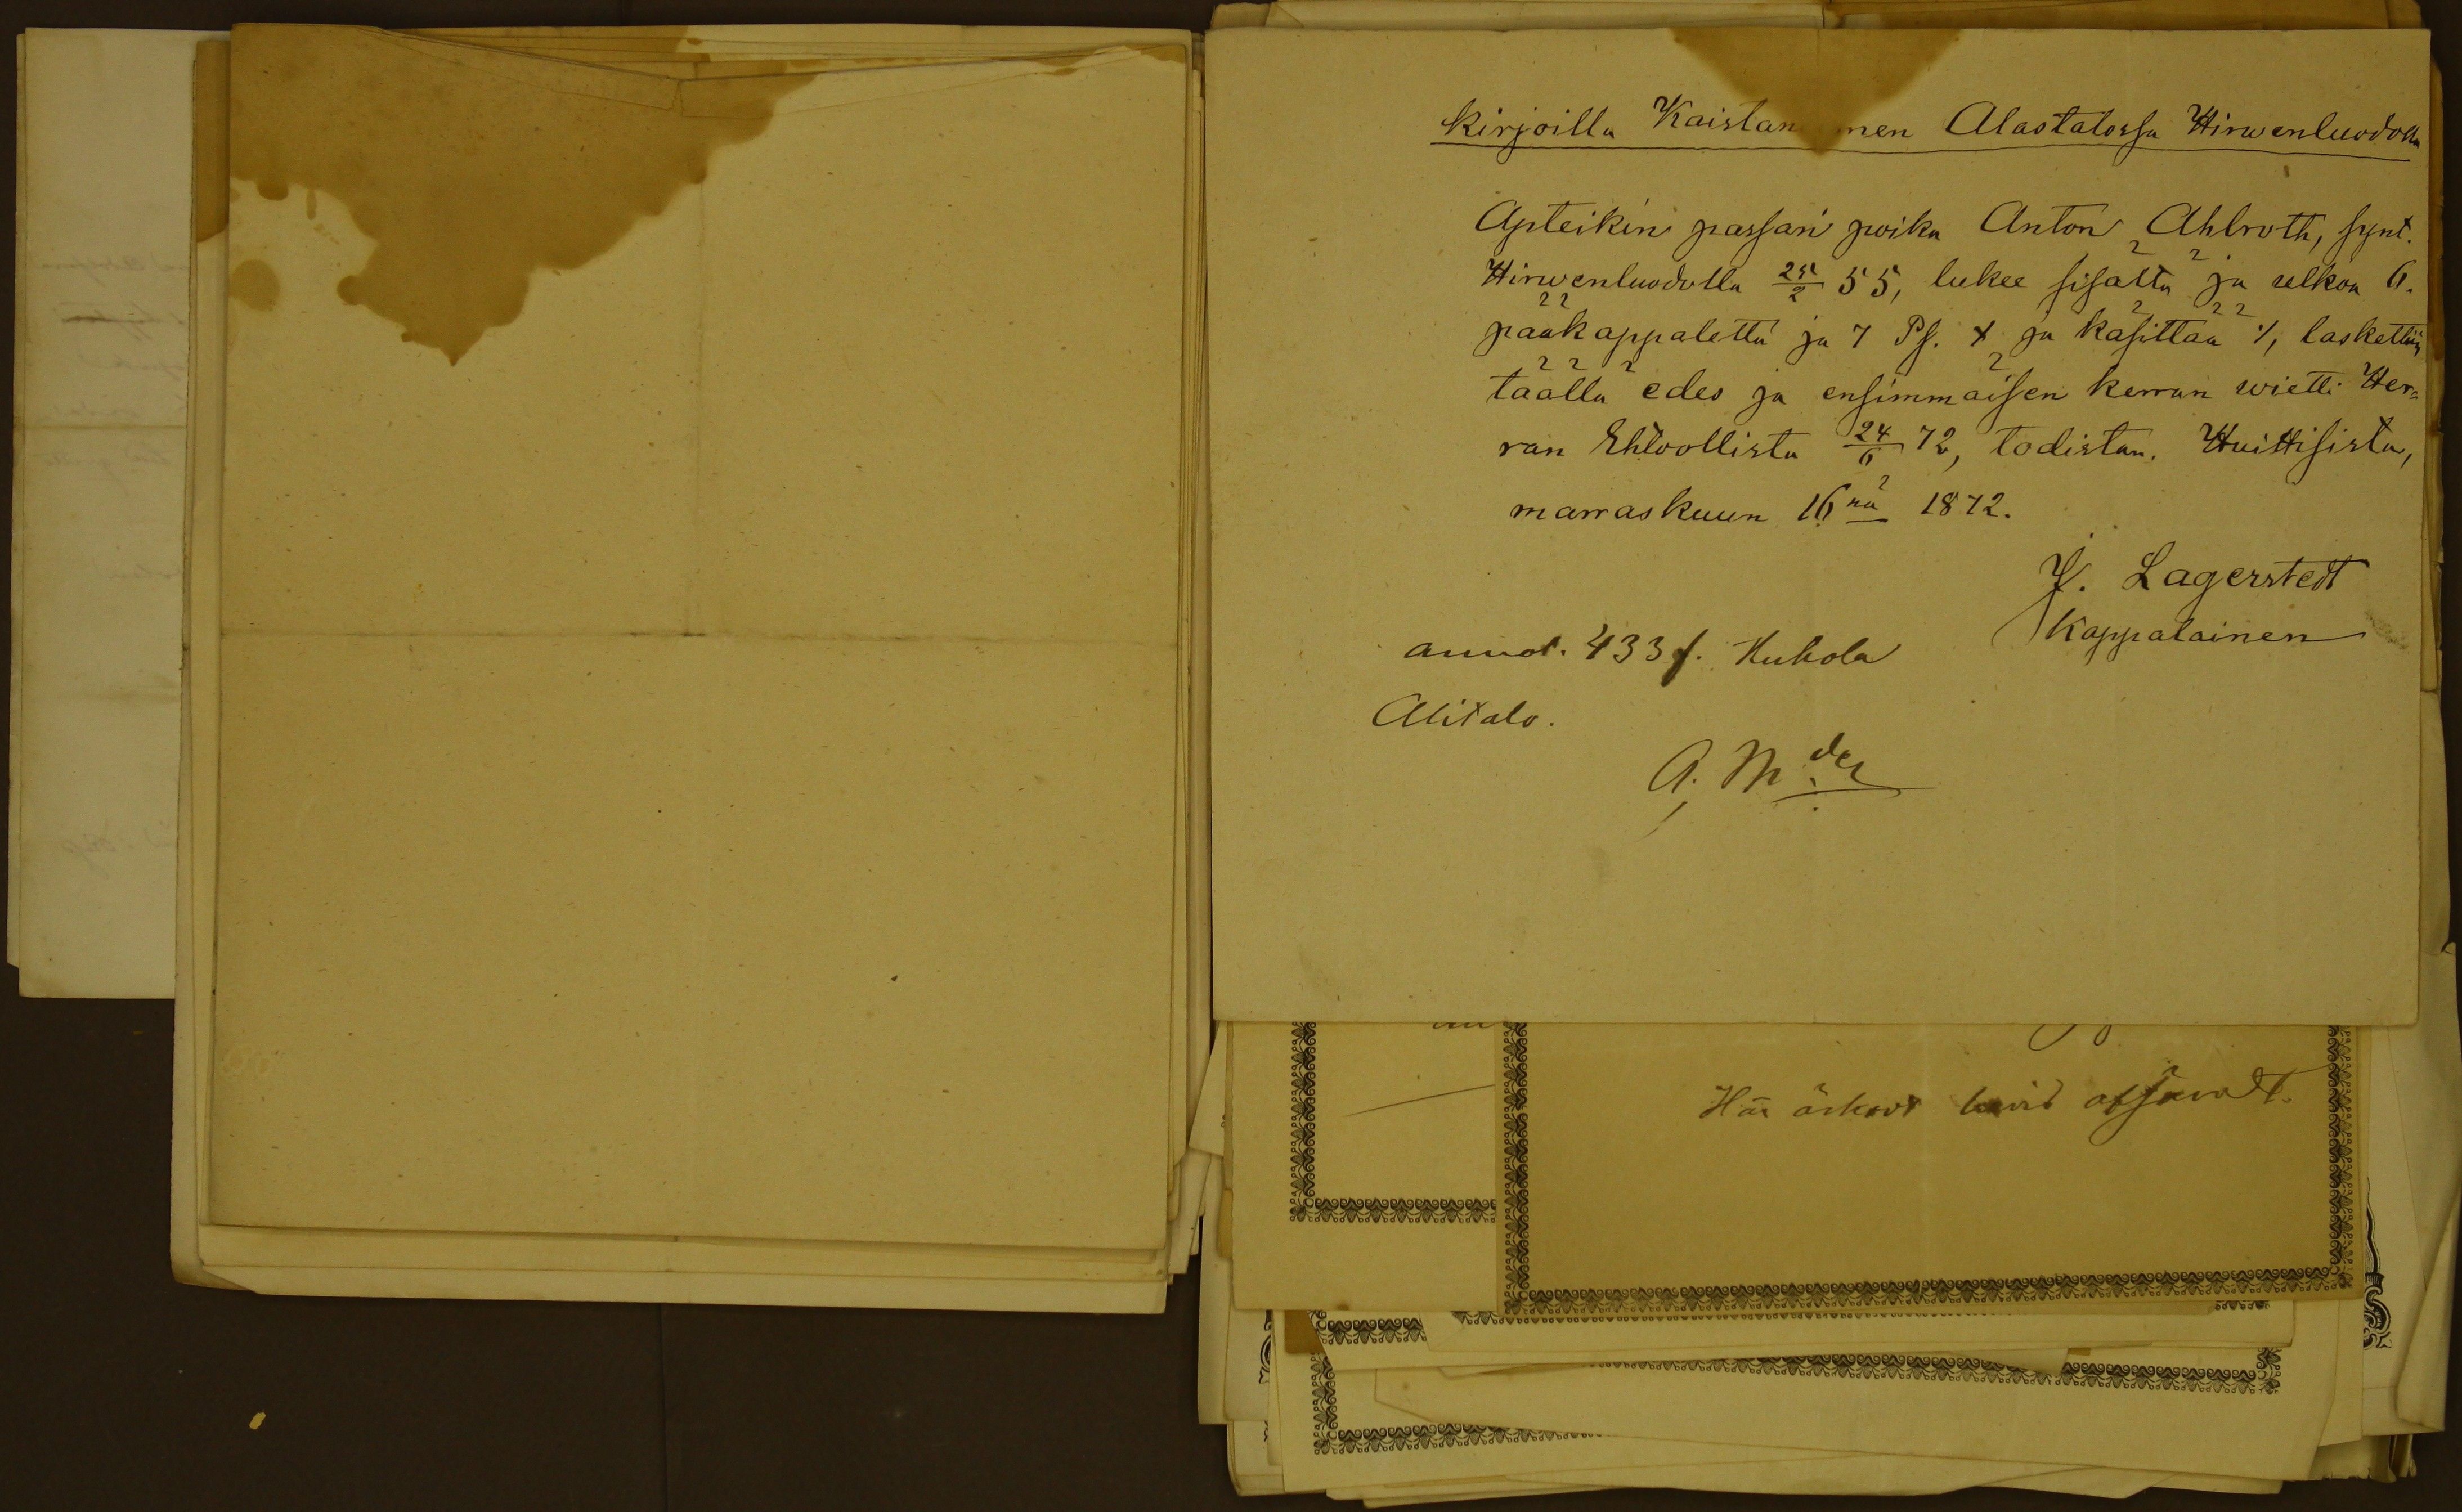 kirjoilla Kaistan men Alastalossa Hirwenluodolla
Apteikin passari poika Anton Ahlroth, synt.
Hirwenluodolla 25/2 55, lukee sisältä ja ulkoa 6.
pääkappaletta ja 7 Ps. + ja käsittää %, laskettiin
täällä edes ja ensimmäisen kerran wietti Her=
ran Ehtoollista 24/6 72, todistan. Huittisista,
marraskuun 16 nä 1872.
J. Lagerstedt
Kappalainen
annot. 433 f. Huhola
Alitalo.
A. M
Här